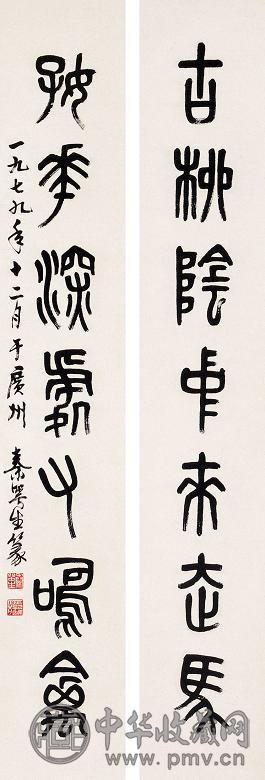 古柳陰中來走馬
好華深處又鳴禽
一九七九年十二月于廣州 秦咢生篆
中华收藏网
www.pmv.cn